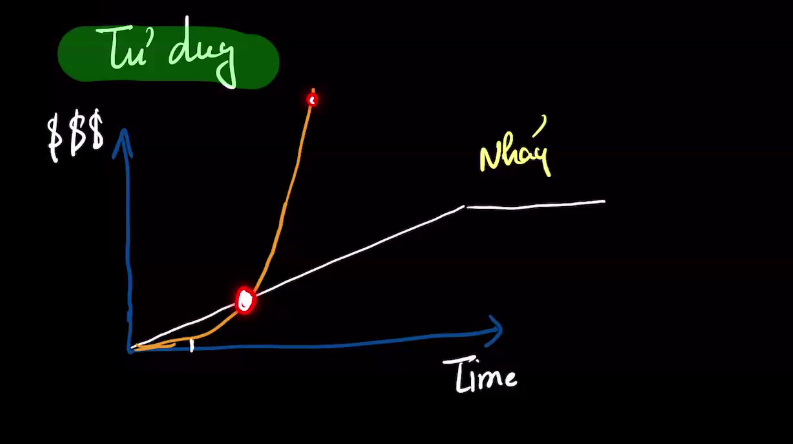 Tư duy
$$$
Nhảy
Time